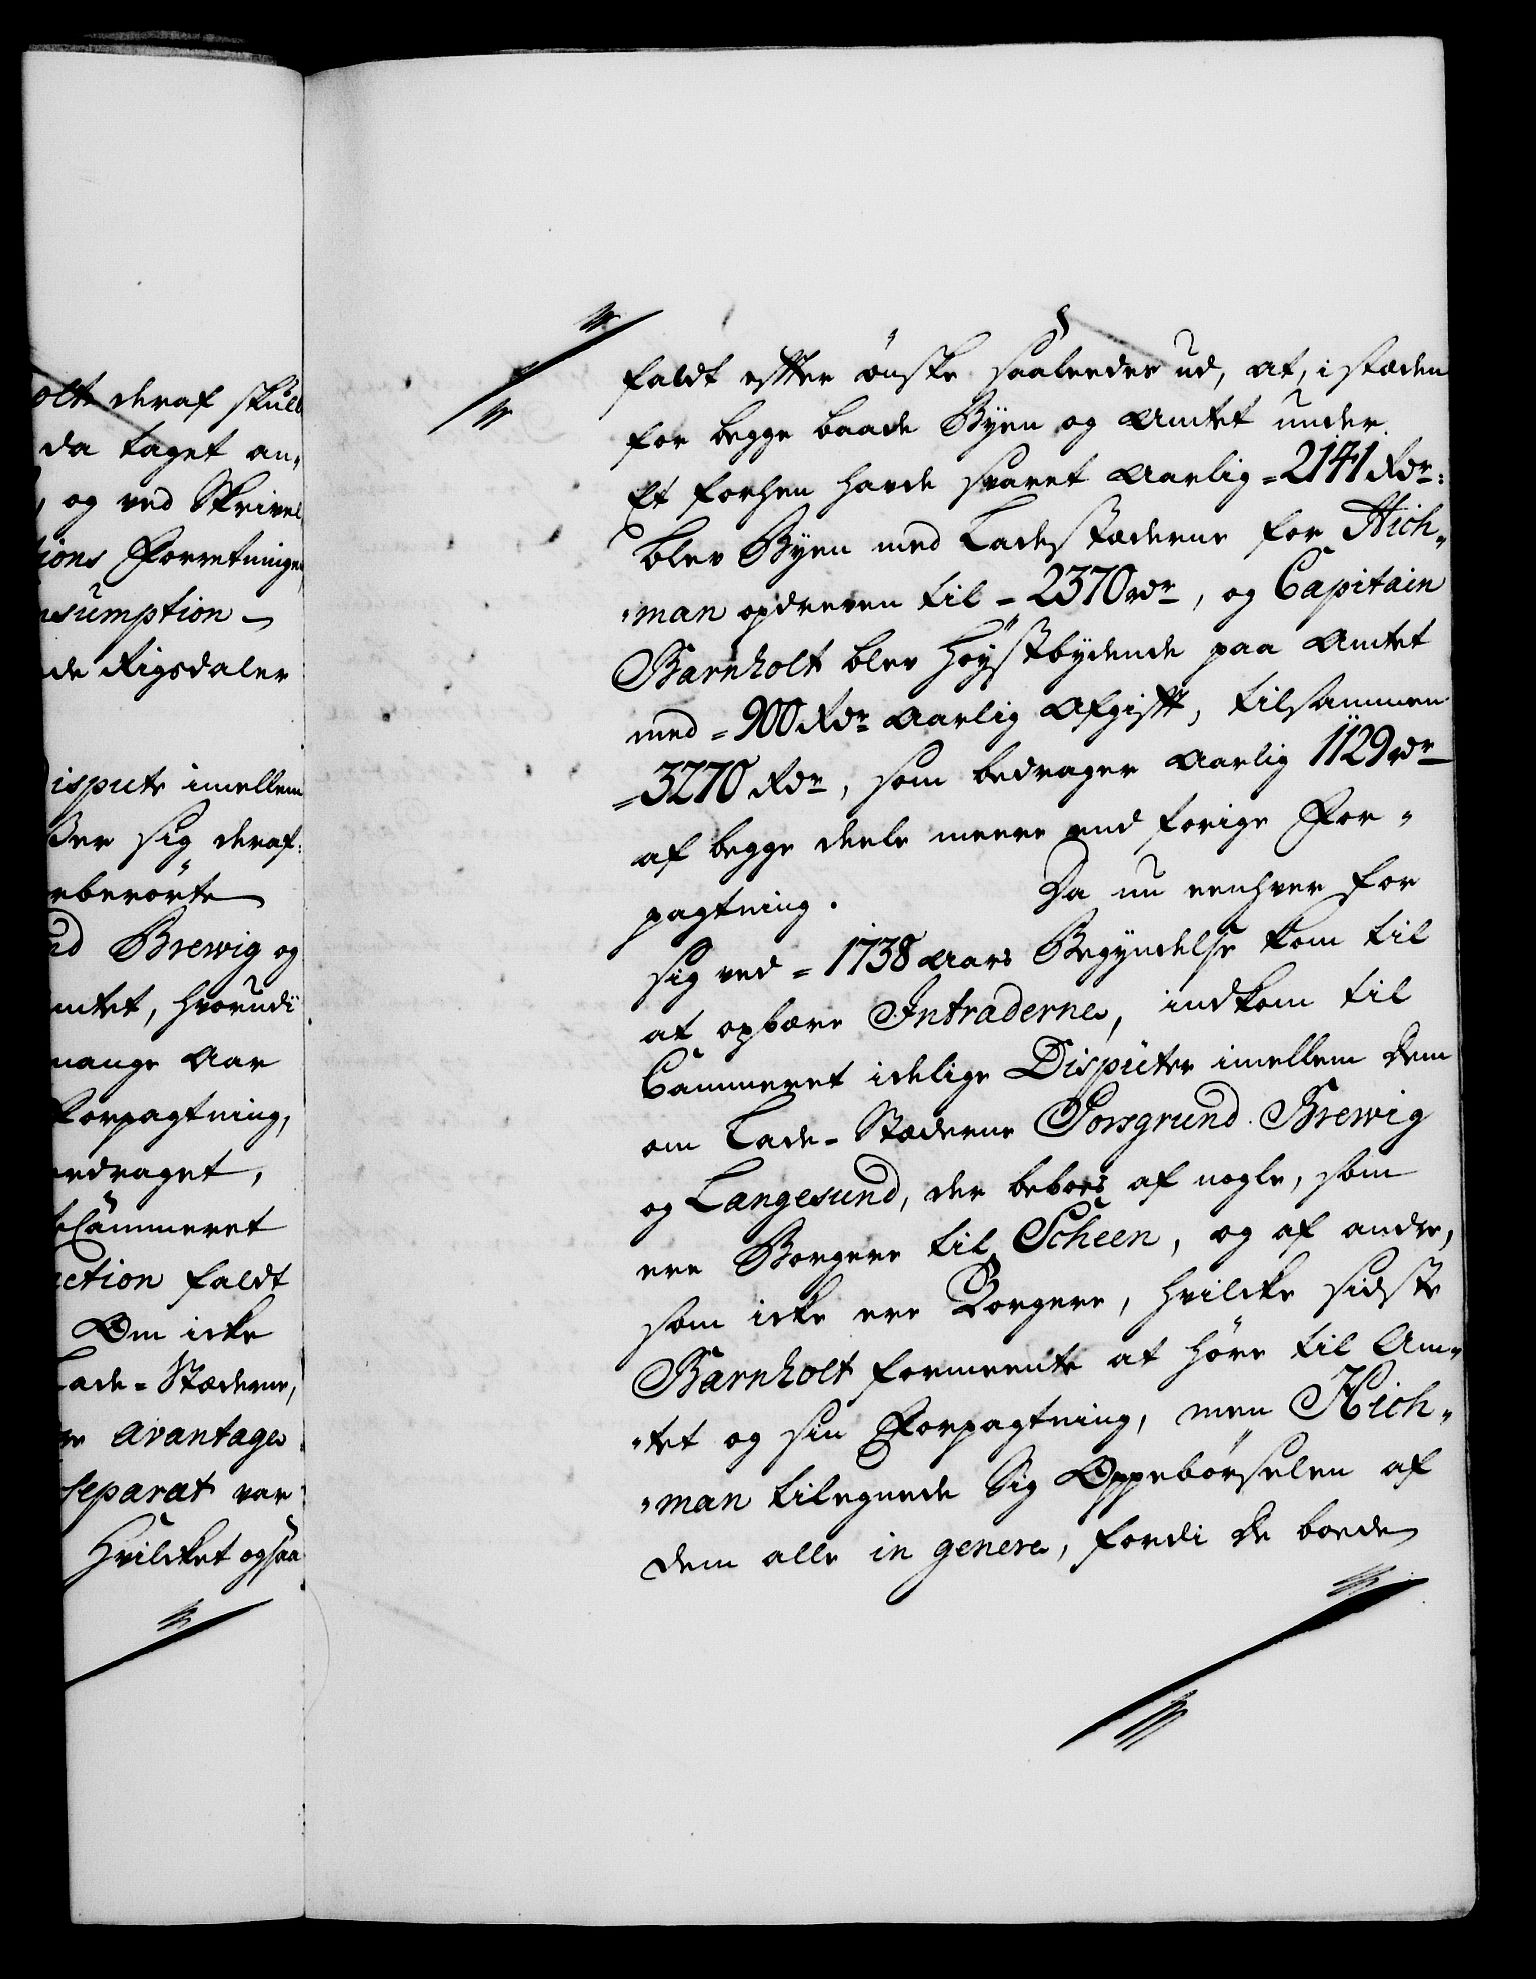 olte deraf skuld
da taget an„
og ved Skrivel
tions Forretninge
nsumption
de Rigsdaler
ispute imellem
ßer sig deraf
rberörte
nd Brewig og
mtet, hvorudi
mange Aar
Forpagtning,
edraget,
Cammeret
ction faldt
Om icke
Lade-Stæderne,
avantage
separat var
Hvilcket ogsaa
faldt efter önske saaleedes ud, at, i stæden
for begge baade Byen og Amtet under
Et forhen havde svaret Aarlig = 2141 Rdr:
blev Byen med Ladestæderne for Hich„
„man opdreven til - 2370 rdr, og Capitain
Barnholt blev Höystbydende paa Amtet
med = 900 Rdr Aarlig Afgift, tilsammen
= 3270 Rdr, som bedrager Aarlig 1129 rdr
af begge deele meere end forige For„
pagtning. Da nu eenhver for
sig ved = 1738 Aars Begyndelse kom til
at opbære Intraderne, indkom til
Cammeret idelige Disputer imellem dem
om Lade-Stæderne Porsgrund. Brewig
og Langesund, der beboes af nogle, som
ere Borgere til Scheen, og af andre,
som icke ere Borgere, hvilcke sidste
Barnholt formeente at höre til Am„
„tet og sin Forpagtning, men Hich„
„man tilegnede Sig Oppebörselen af
dem alle in genere, fordi de boede